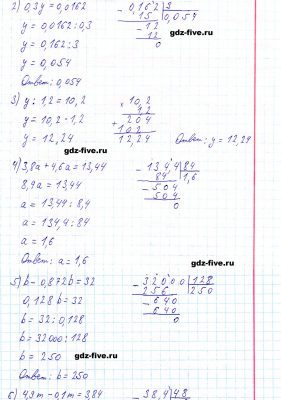 2) 0,3y = 0,0162
y = 0,0162 : 0,3
y = 0,162 : 3
y = 0,054
Ответ: 0,054
0,162 | 3
15 | 0,054
12
12
0
gdz-five.ru
3) y : 1,2 = 10,2
y = 10,2 · 1,2
y = 12,24
× 10,2
1,2
+ 204
102
12,24
Ответ: y = 12,24
gdz-five.ru
gdz-five.ru
4) 3,8a + 4,6a = 13,44
8,4a = 13,44
a = 13,44 : 8,4
a = 134,4 : 84
a = 1,6
Ответ: a = 1,6
134,4 | 84
84 | 1,6
504
504
0
gdz-five.ru
gdz-five.ru
5) b - 0,872b = 32
0,128b = 32
b = 32 : 0,128
b = 32000 : 128
b = 250
Ответ: b = 250
32000 | 128
256 | 250
640
640
0
gdz-five.ru
6) 4,9m - 0,1m = 3,84
38,4 | 4,8